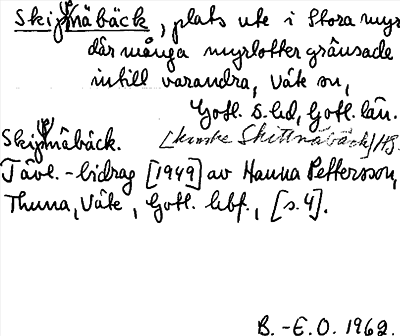 Skipnäbäck, plats ute i Stora myr
där många myrlotter gränsade
intill varandra, Väte sn,
Gotl. s. hd, Gotl. län.
Skipnäbäck. [kanske Skittnäbäck] HG.
Tävl.-bidrag [1949] av Hanna Pettersson,
Thuna, Väte, Gotl. hbf., [s.4].
B.-E.O. 1962.